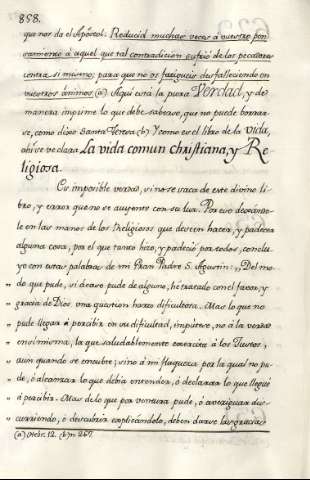 858.
que nos da el Apóstol: Reducid muchas veces a vuestro pen
samiento a aquel que tal contradicion sufrió de los pecadores
contra si mismo; para que no os fatigueis desfalleciendo en
vuestros ánimos (a). Aqui está la pura Verdad, y de
manera imprime lo que debe saberse, que no puede borrar
se, como dixo Santa Teresa (b). Y como es el libro de la Vida,
ahi se ve clara La vida comun christiana, y Re
ligiosa.
Es imposible verdad, si no se saca de este divino li
bro, y error que no se auyente con su luz. Por eso dexando
le en las manos de los Religiosos que deseen hacer, y padecer
alguna cosa, por el que tanto hizo, y padeció por todos, conclu
yo con estas palabras de mi Gran Padre S. Agustin: „Del mo
„ do que pude, si acaso pude de alguno, he tratado con el favor, y
„ gracia de Dios una question harto dificultosa. Mas lo que no
„ pude llegar á percibir en su dificultad, impútese, no á la verdad
„ en si misma, la que saludablemente exercita á los Justos,
„ aun quando se encubre; sino á mi flaqueza por la qual no pu
„ de, ó alcanzar lo que debia entender, ó declarar lo que llegué
„ á percibir. Mas de lo que por ventura pude, ó averiguar dis
„ curriendo, ó descubrir explicándolo, deben darse las gracias
(a) Hebr. 12. (b) n. 267.